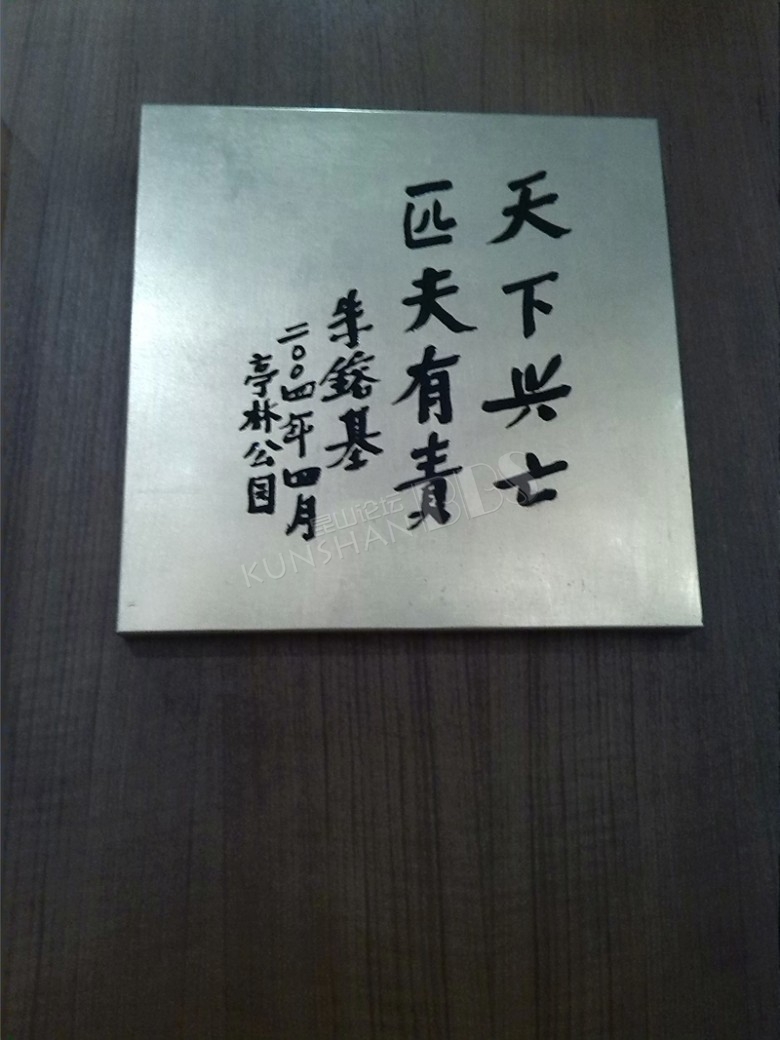 天下兴亡
匹夫有责
朱镕基
二〇〇四年四月
亭林公园
昆山论坛
KUNSHAN BBS